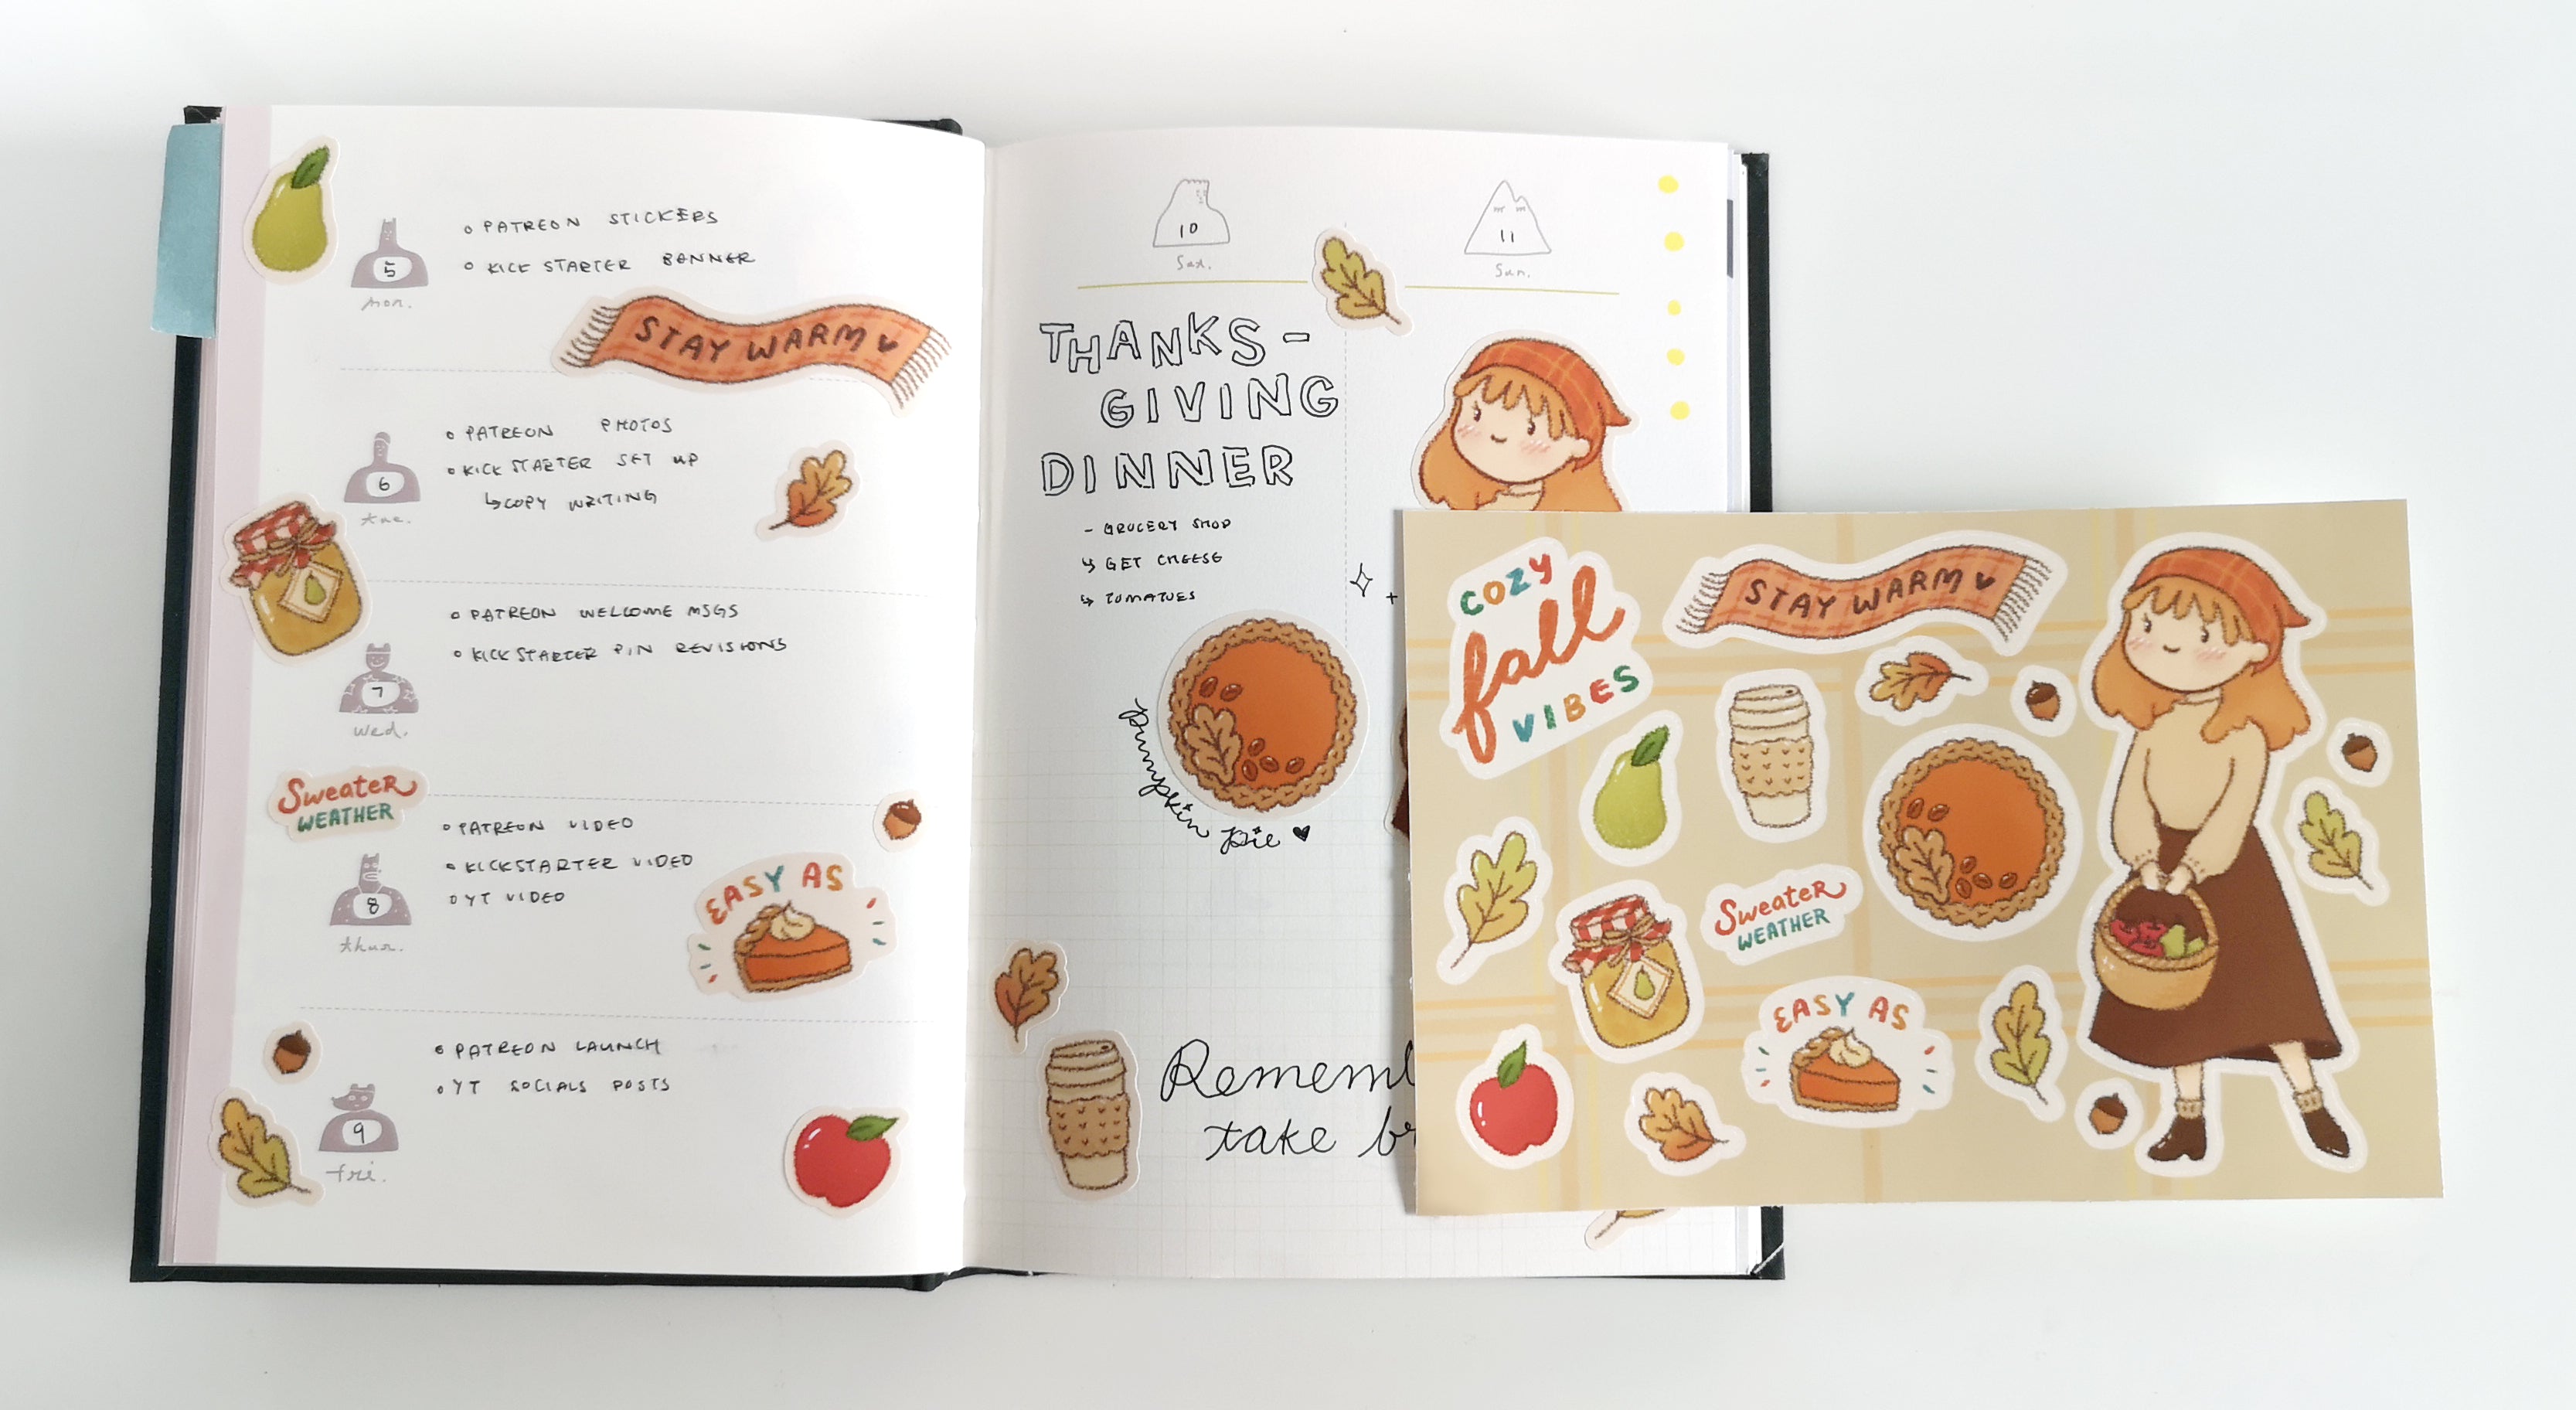 5
mon.
o PATREON STICKERS
o KICKSTARTER BANNER
STAY WARM
6
tue.
o PATREON PHOTOS
o KICKSTARTER SET UP
↳ COPY WRITING
7
wed.
o PATREON WELCOME MSGS
o KICKSTARTER PIN REVISIONS
Sweater
WEATHER
8
thur.
o PATREON VIDEO
o KICKSTARTER VIDEO
o YT VIDEO
EASY AS
9
fri.
o PATREON LAUNCH
o YT SOCIALS POSTS
10
Sat.
11
Sun.
THANKS-
GIVING
DINNER
- GROCERY SHOP
↳ GET CHEESE
↳ TOMATOES
pumpkin pie ♥
take
COZY
fall
VIBES
STAY WARM
Sweater
WEATHER
EASY AS